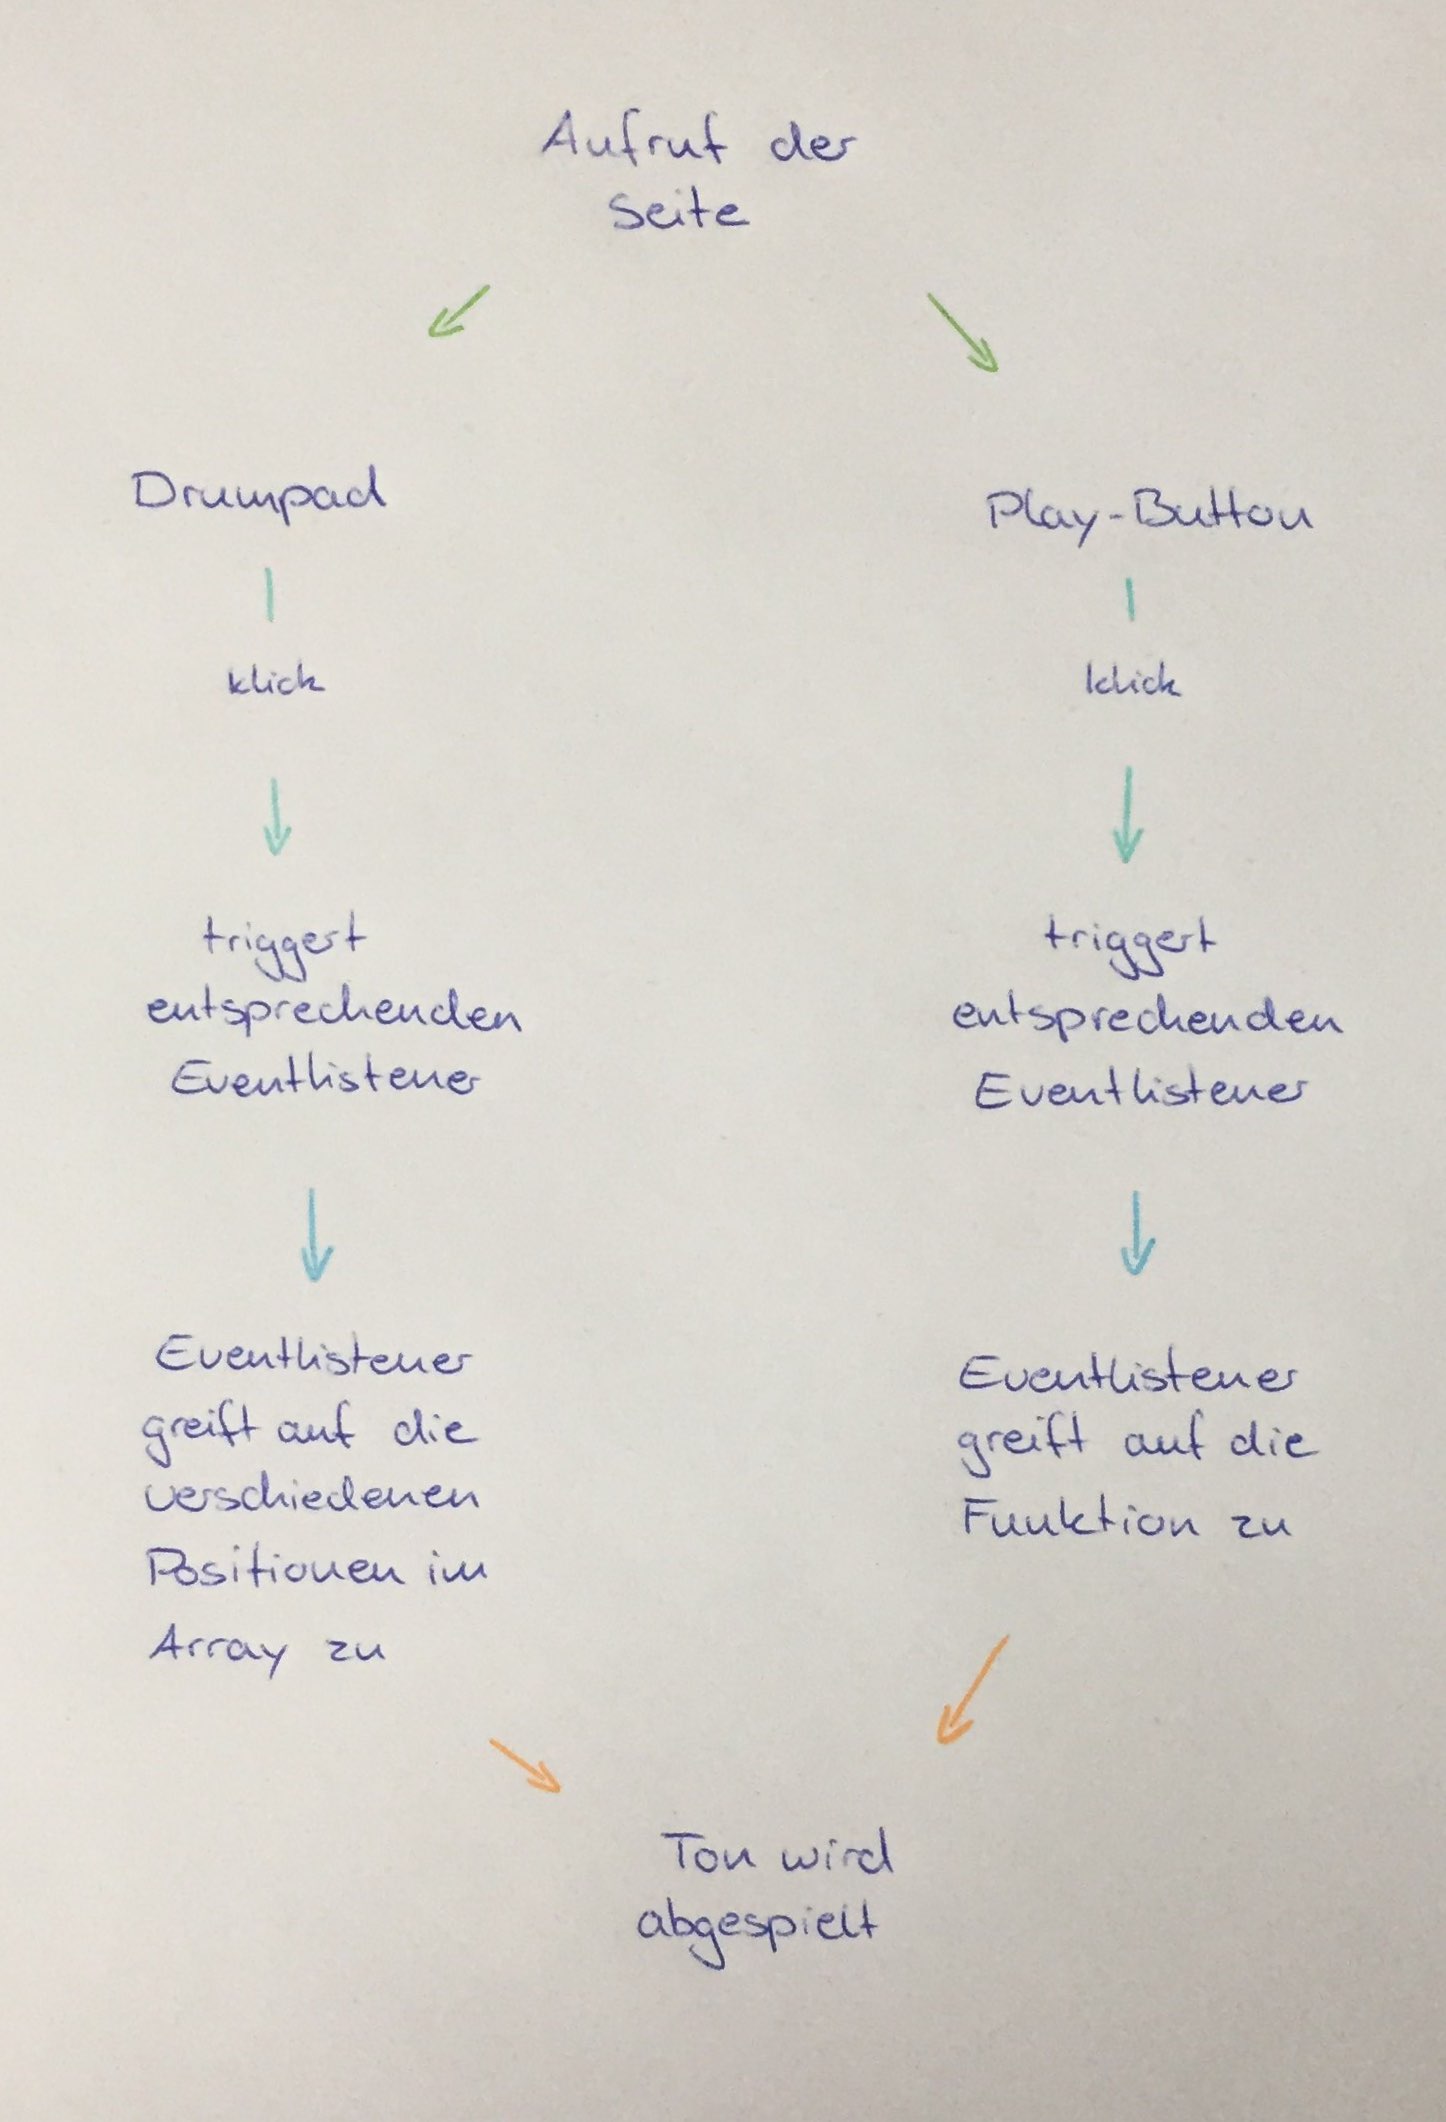 Aufruf der
Seite
Drumpad
klick
triggert
entsprechenden
Eventlistener
Eventlistener
greift auf die
verschiedenen
Positionen im
Array zu
Play-Button
klick
triggert
entsprechenden
Eventlistener
Eventlistener
greift auf die
Funktion zu
Ton wird
abgespielt